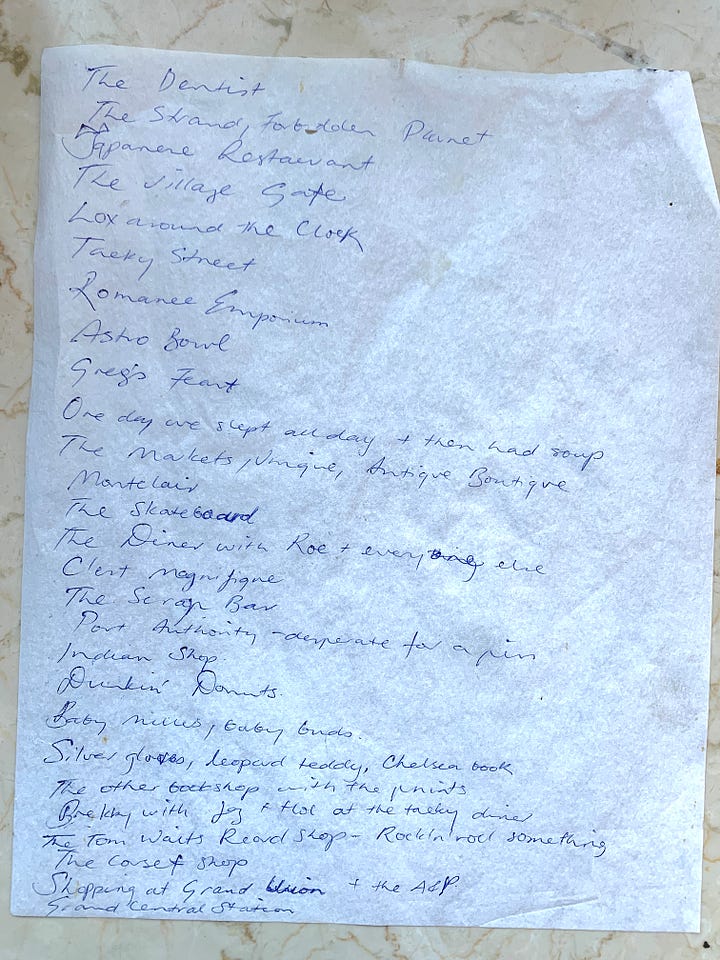 The Dentist
The Strand, Forbidden Planet
Japanese Restaurant
The Village Gate
Lox around the Clock
Tacky Street
Romance Emporium
Astro Bowl
Greg's Feast
One day we slept all day + then had soup
The Markets, Unique, Antique Boutique
Montclair
The Skateboard
The Diner with Roe + every else
C'est Magnifique
The Scrap Bar
Port Authority - desperate for a piss
Indian Shop.
Dunkin' Donuts.
Baby millers, baby buds.
Silver gloves, leopard teddy, Chelsea book
The other bookshop with the prints
Brekky with Joz + Flol at the tacky diner
The Tom Waits Record Shop - Rock'n roll something
The corset shop
Shopping at Grand Union + the A&P.
Grand Central Station